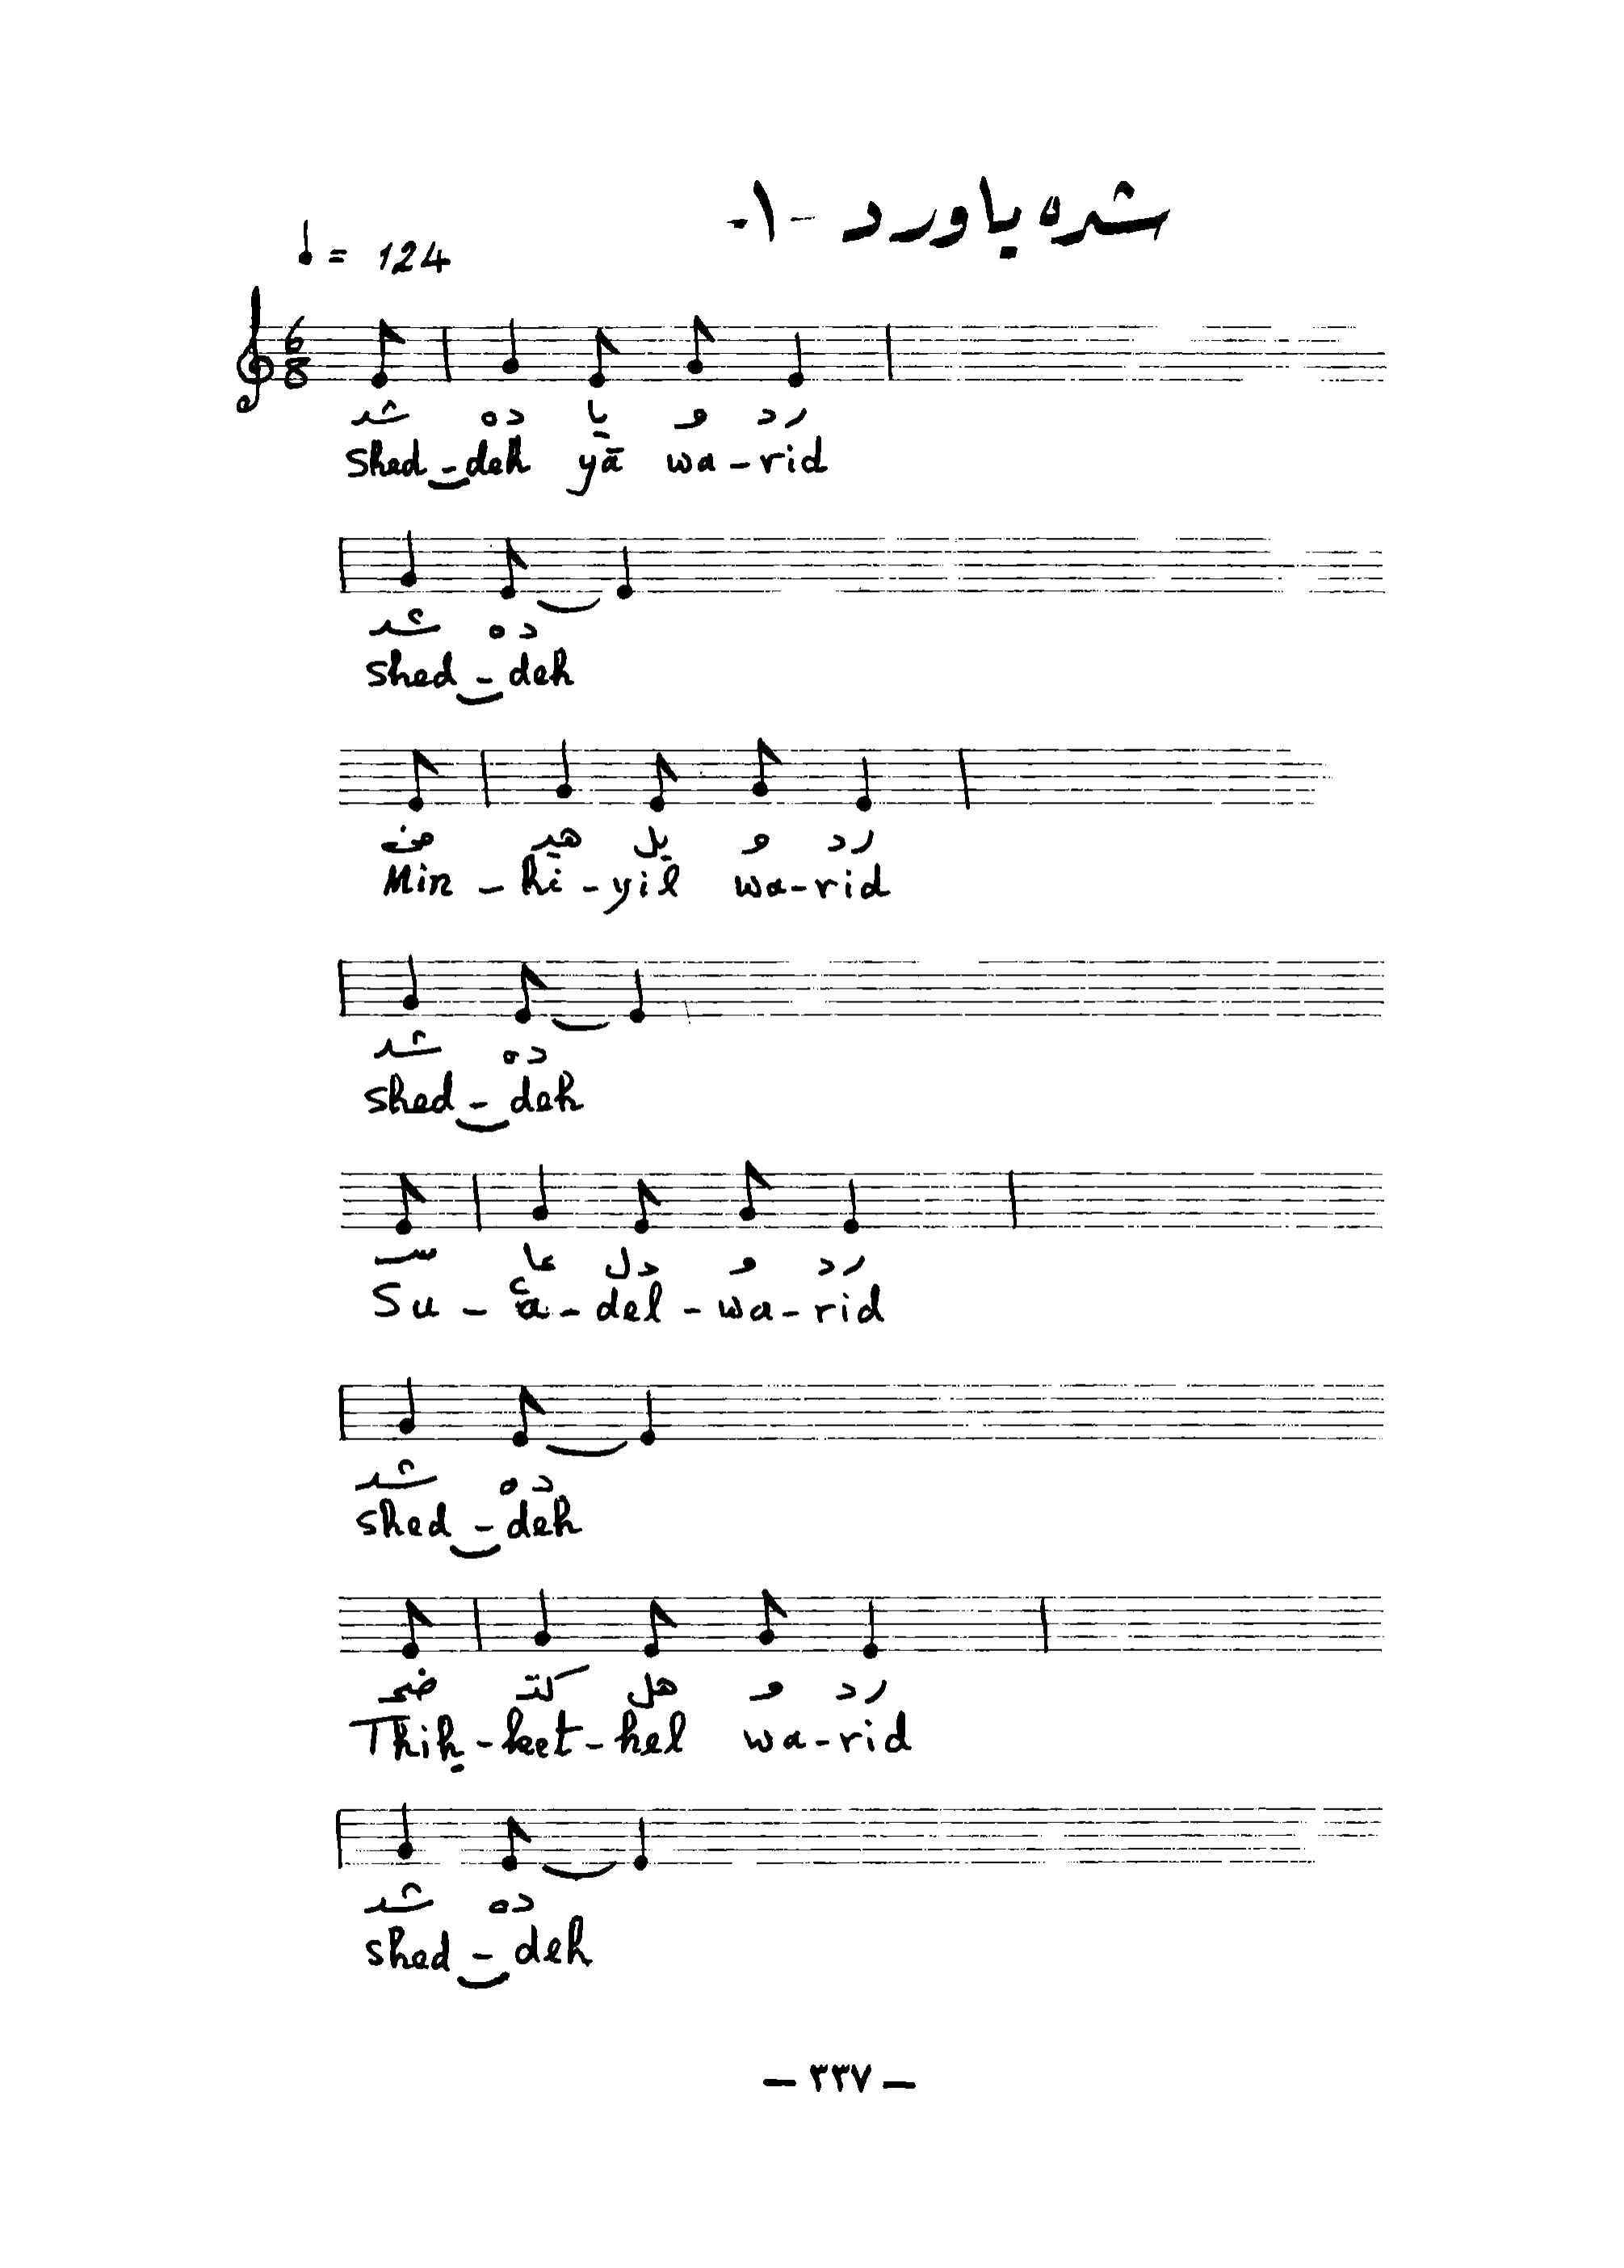 شده يا ورد -١-
♩ = 124
6/8
شد ده يا و رد
Shed-deh yā wa-rid
شد ده
shed-deh
من هي يل و رد
Min-hi-yil wa-rid
شد ده
shed-deh
س عا دل و رد
Su-ʿa-del-wa-rid
شد ده
shed-deh
ضحـ كتـ هل و رد
Thiḥ-ket-hel wa-rid
شد ده
shed-deh
— ٣٣٧ —